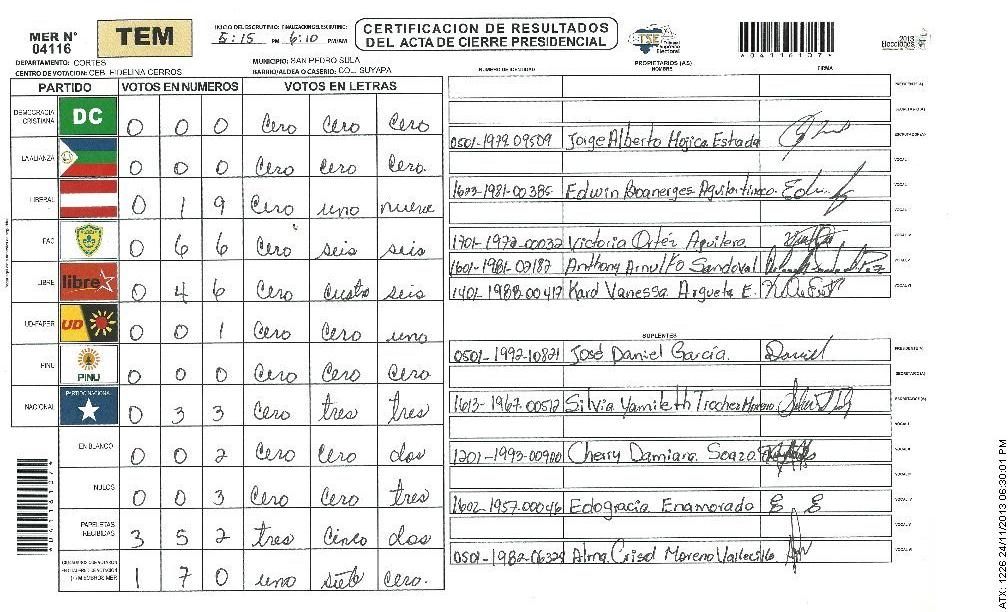 MER N° 04116
TEM
INICIO DEL ESCRUTINIO: FINALIZACION DEL ESCRUTINIO:
5:15 PM 6:10 PM/AM
CERTIFICACION DE RESULTADOS
DEL ACTA DE CIERRE PRESIDENCIAL
TSE Tribunal Supremo Electoral
2013
Elecciones
*04116107*
DEPARTAMENTO: CORTES
MUNICIPIO: SAN PEDRO SULA
CENTRO DE VOTACION: CEB. FIDELINA CERROS
BARRIO/ALDEA O CASERIO: COL. SUYAPA
PARTIDO VOTOS EN NUMEROS VOTOS EN LETRAS
DEMOCRACIA CRISTIANA DC 0 0 0 Cero Cero Cero
LA ALIANZA 0 0 0 Cero Cero Cero.
LIBERAL 0 1 9 Cero uno nueve
PAC 0 6 6 Cero seis seis
LIBRE libre 0 4 6 Cero cuatro seis
UD-FAPER UD 0 0 1 Cero Cero uno
PINU PINU 0 0 0 Cero Cero Cero
NACIONAL PARTIDO NACIONAL 0 3 3 Cero tres tres
EN BLANCO 0 0 2 Cero Cero dos
NULOS 0 0 3 Cero Cero tres
PAPELETAS RECIBIDAS 3 5 2 tres Cinco dos
1 7 0 uno siete Cero.
PROPIETARIOS (AS)
NUMERO DE IDENTIDAD NOMBRE FIRMA
PRESIDENTE (A)
SECRETARIO (A)
0501-1979-09509 Jorge Alberto Mojica Estrada ESCRUTADOR (A)
VOCAL I
1623-1981-00385 Edwin Boanerges Aguilar VOCAL II
VOCAL III
1701-1972-00032 Victoria Ortéz Aguilera VOCAL IV
1601-1981-02182 Anthony Arnulfo Sandoval VOCAL V
1401-1988-00417 Karol Vanessa Argueta E. VOCAL VI
SUPLENTES
0501-1992-10821 José Daniel García. Daniel PRESIDENTE (A)
SECRETARIO (A)
1613-1967-00512 Silvia Yamileth Trochez Moreno ESCRUTADOR (A)
VOCAL I
1201-1993-00900 Cherry Damiara VOCAL II
VOCAL III
1602-1957-00046 Edogracia Enamorado E E VOCAL IV
VOCAL V
0501-1982-06329 Alma Crisol Moreno Vallecillo VOCAL VI
*04116107*
ATX: 1226 24/11/2013 06:30:01 PM